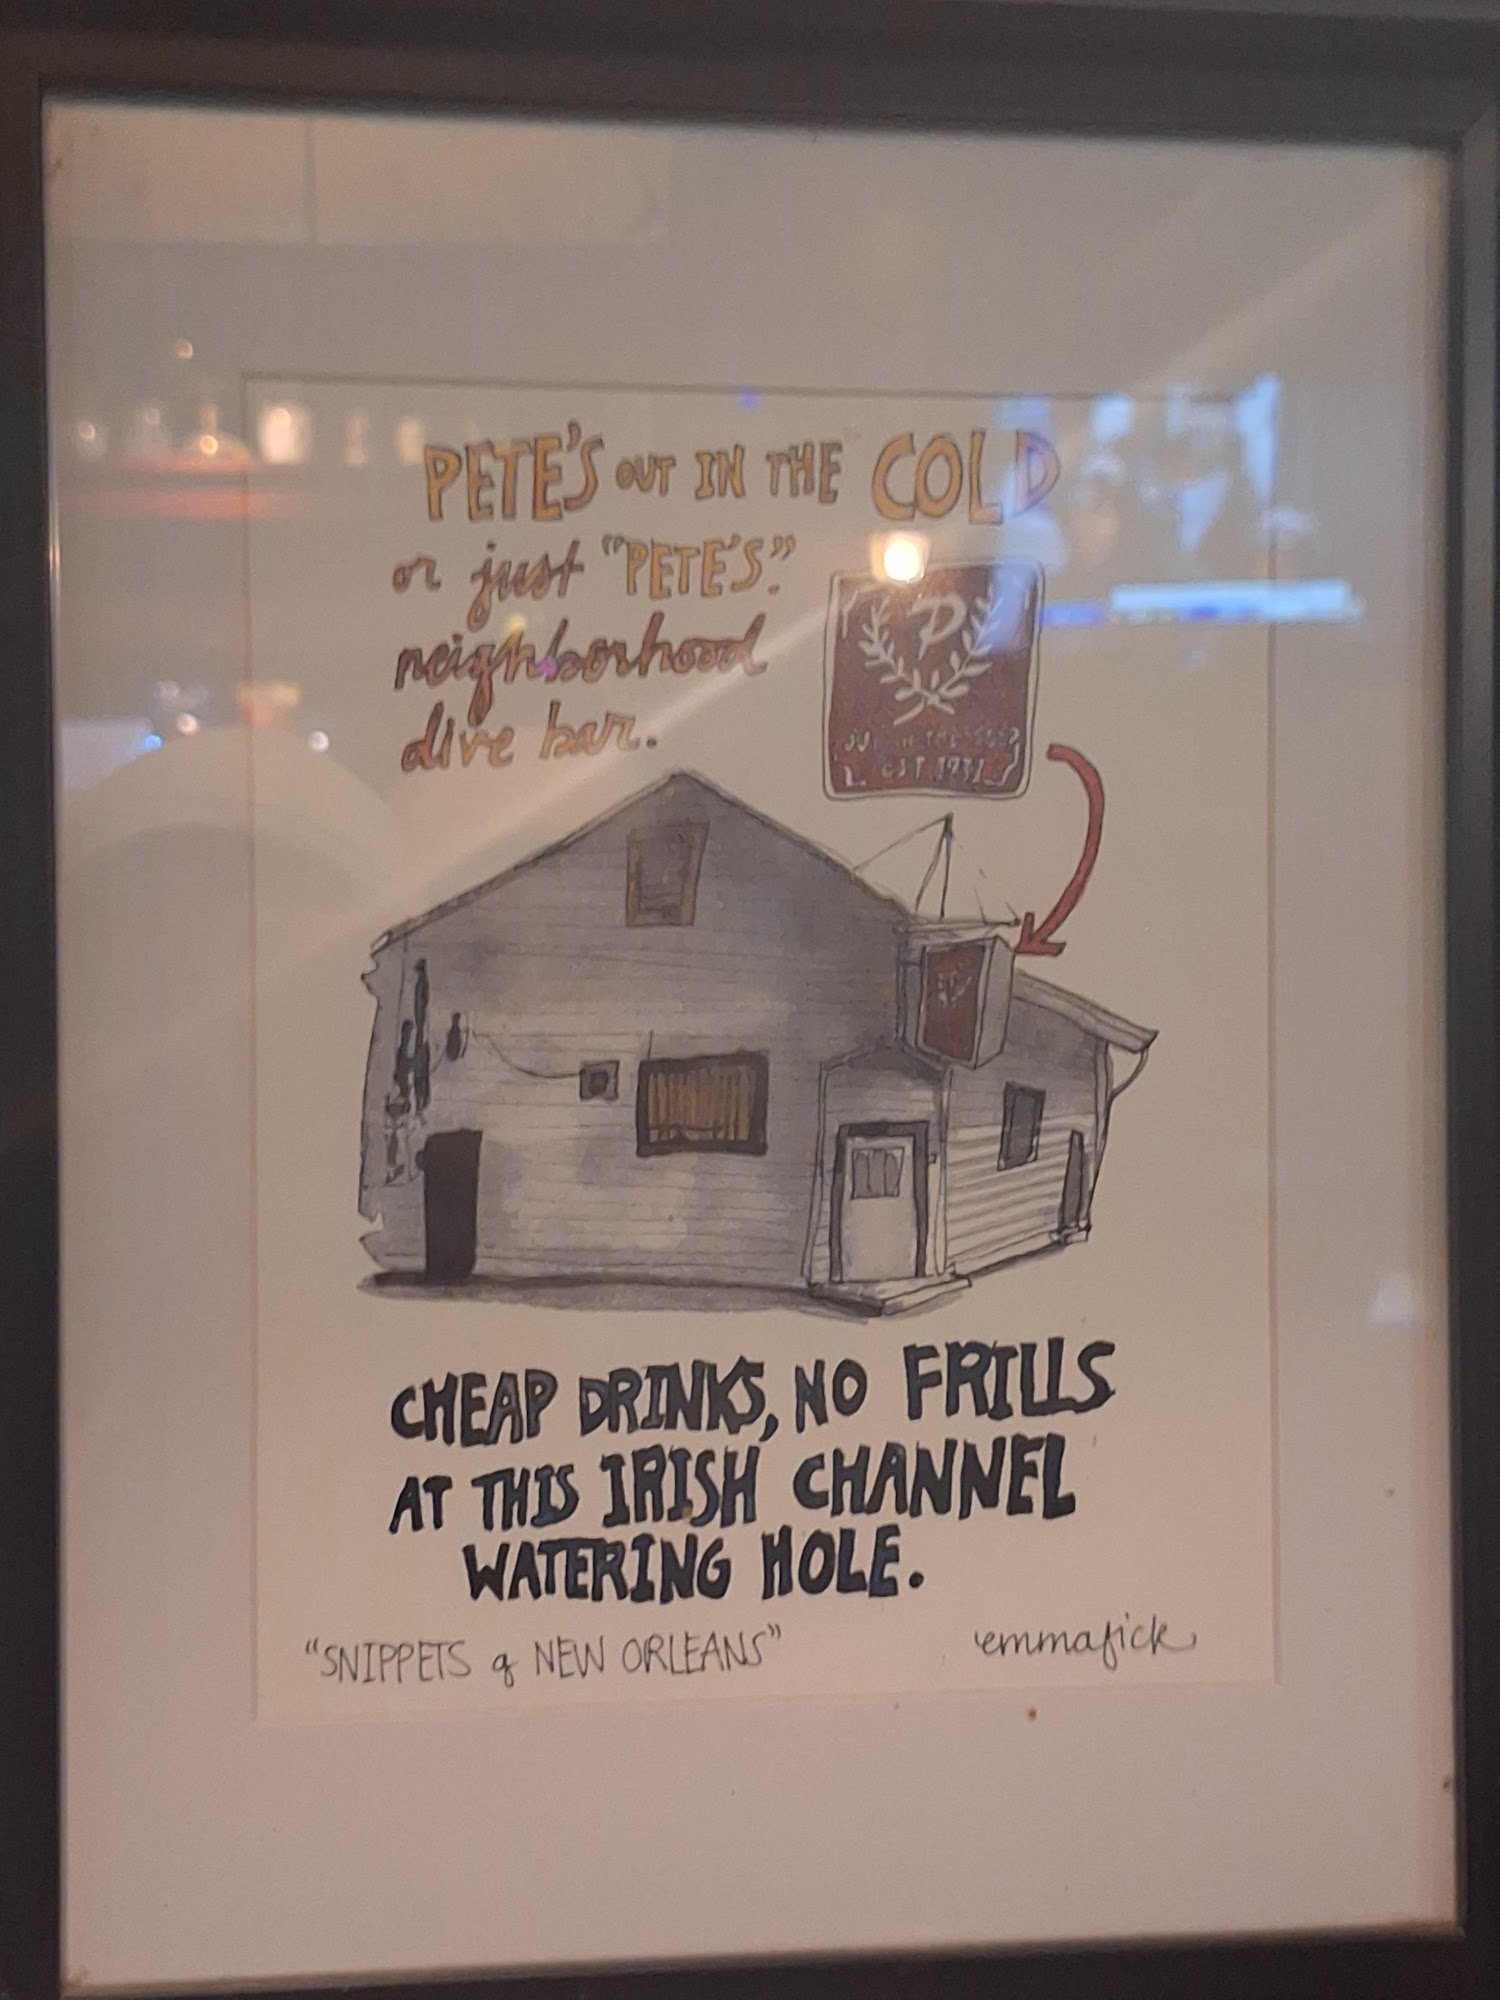 PETE'S OUT IN THE COLD
or just "PETE'S."
neighborhood
dive bar.
P
OUT IN THE COLD
EST
CHEAP DRINKS, NO FRILLS
AT THIS IRISH CHANNEL
WATERING HOLE.
"SNIPPETS of NEW ORLEANS"
emmafick